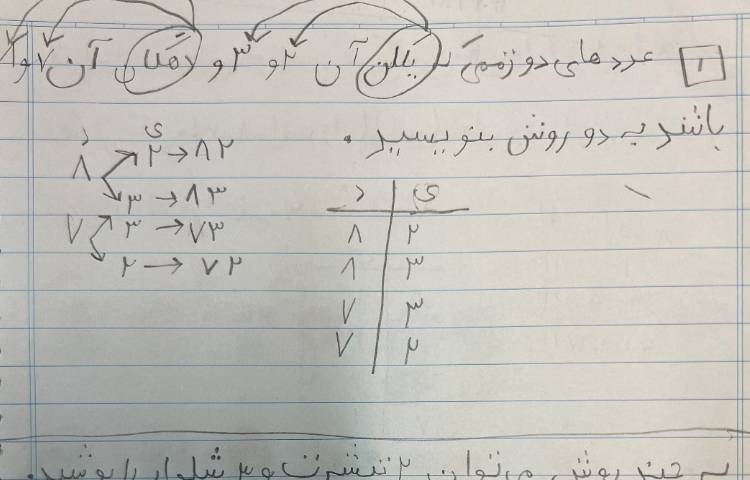 ۱ عددهای دو رقمی که یکان آن ۲ و ۳ و دهگان آن ۷ و ۸
باشد به دو روش بنویسید.
د ی
۸ ۲ → ۸۲
۳ → ۸۳
۷ ۳ → ۷۳
۲ → ۷۲
د ی
۸ ۲
۸ ۳
۷ ۳
۷ ۲
به چند روش می‌توان ۲ تیشرت و ۳ شلوار را پوشید.